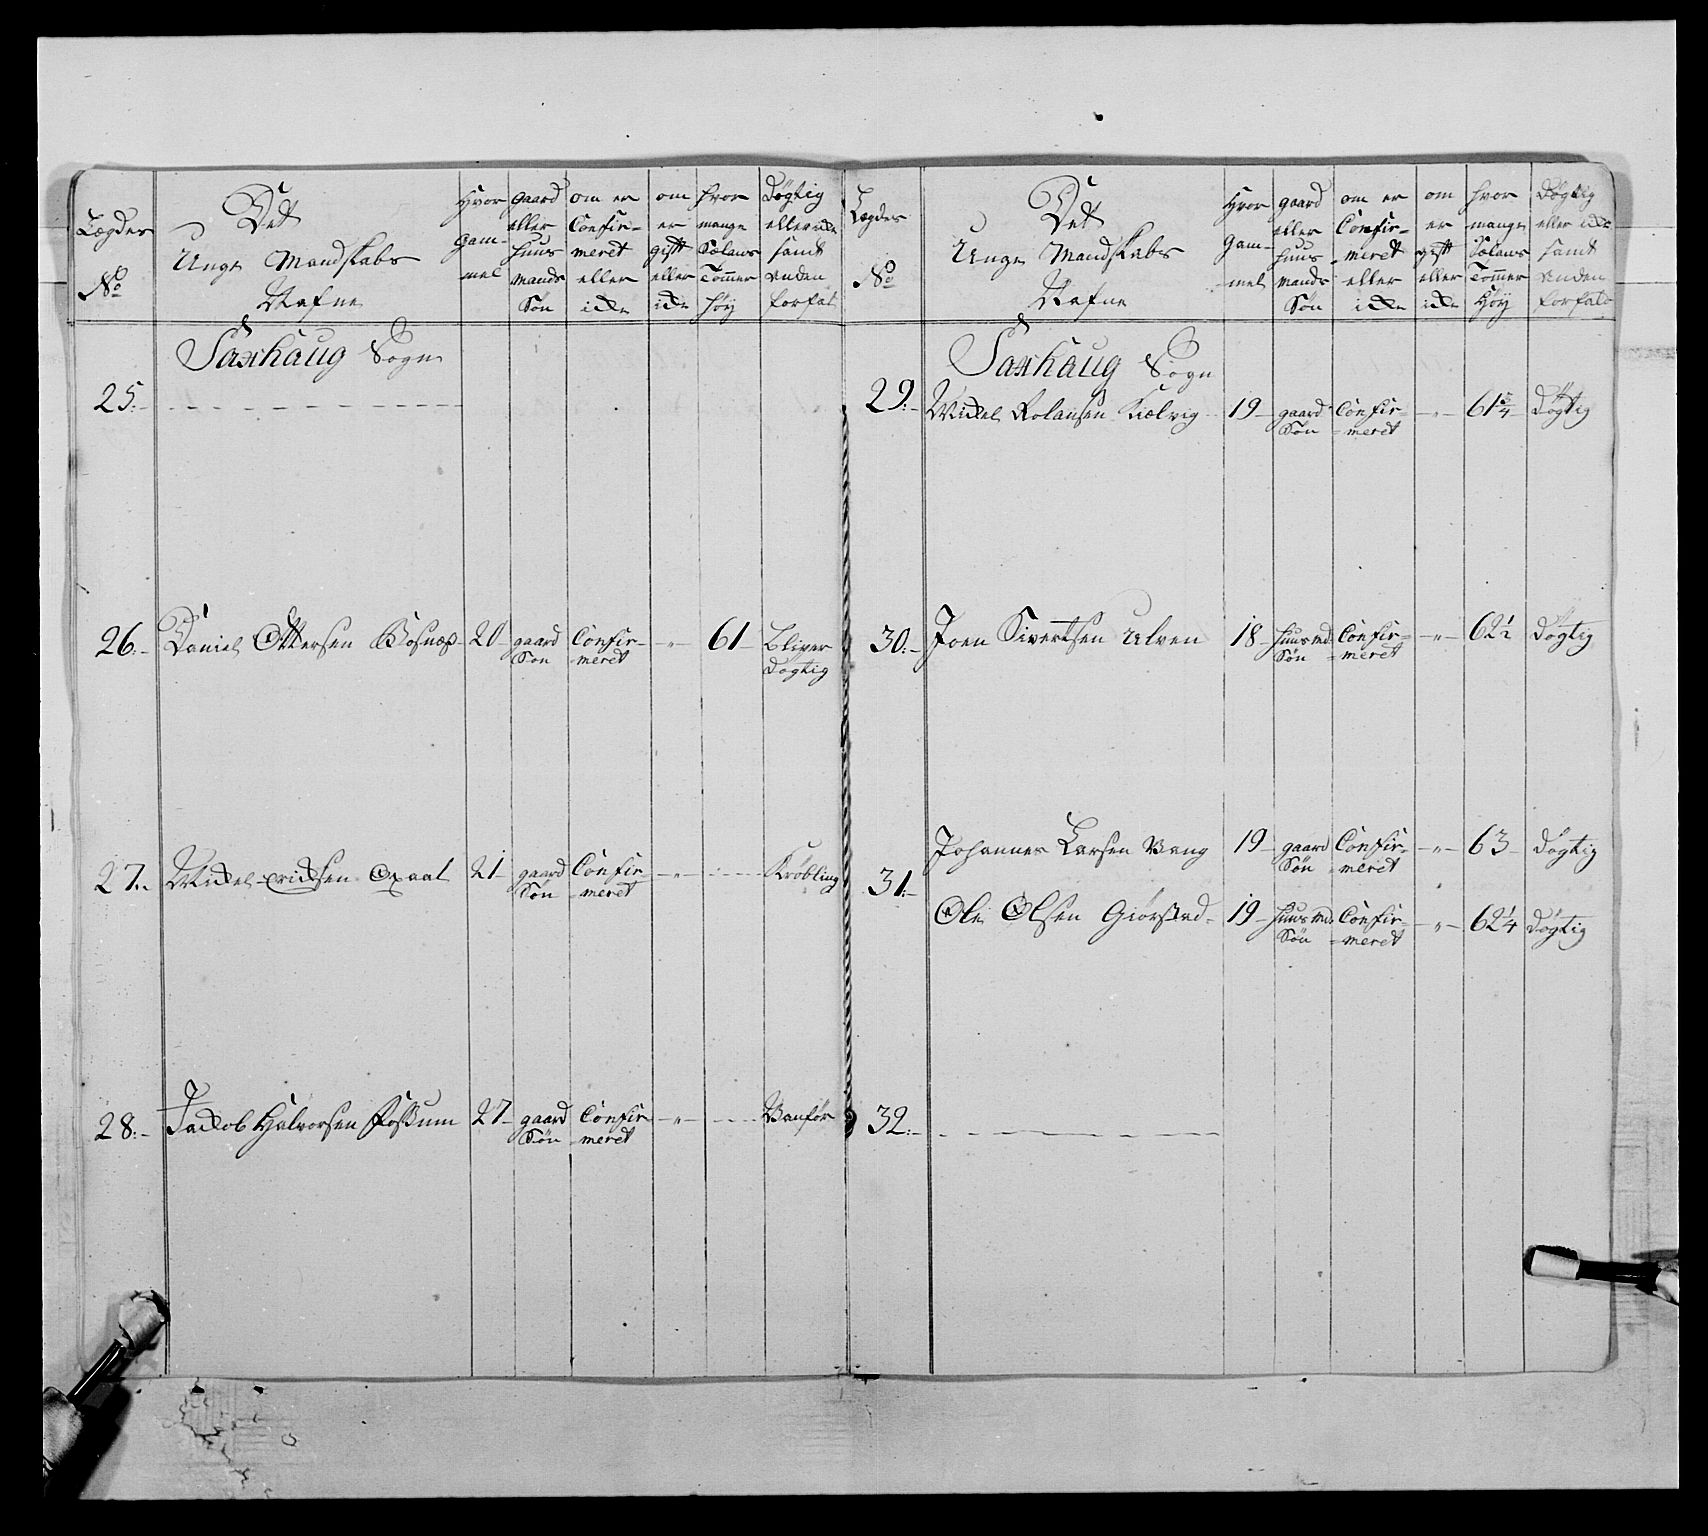 Lægdes No | Det Unge Mandskabs Nafne | Hvor gam- mel | gaard eller huus mands Søn | om er Confir- meret eller icke | om er gift eller icke | hvor mange Sælans Tommer høy | Døgtig eller icke samt anden forfal
Saxhaug Sogn
25.
26. Daniel Ottersen 20 gaard Søn Confir- meret - „ - 61 Bliver Døgtig
27. Mickel Ericksen 21 gaard Søn Confir- meret - „ - Krøbling
28. Jackob Halvorsen Fossum 27 gaard Søn Confir meret - „ - Vanför
Lægdes No | Det Unge Mandskabs Nafne | Hvor gam- mel | gaard eller huus mands Søn | om er Confir- meret eller icke | om er gift eller icke | hvor mange Sælans Tommer Høy | Døgtig eller icke samt anden forfald
Saxhaug Sogn
29. Mickel Rolansen Kiælvig 19 gaard Søn Confir- meret - „ - 61 3/4 Døgtig
30. Joen Sivertsen Ulven 18 huus md Søn Confir- meret - „ - 62 1/2 Døgtig
31. Johannes Larsen Vang 19 gaard Søn Confir- meret - „ - 63 Døgtig
Ole Olsen 19 huus md Søn Confir- meret - „ - 62 1/4 Døgtig
32.